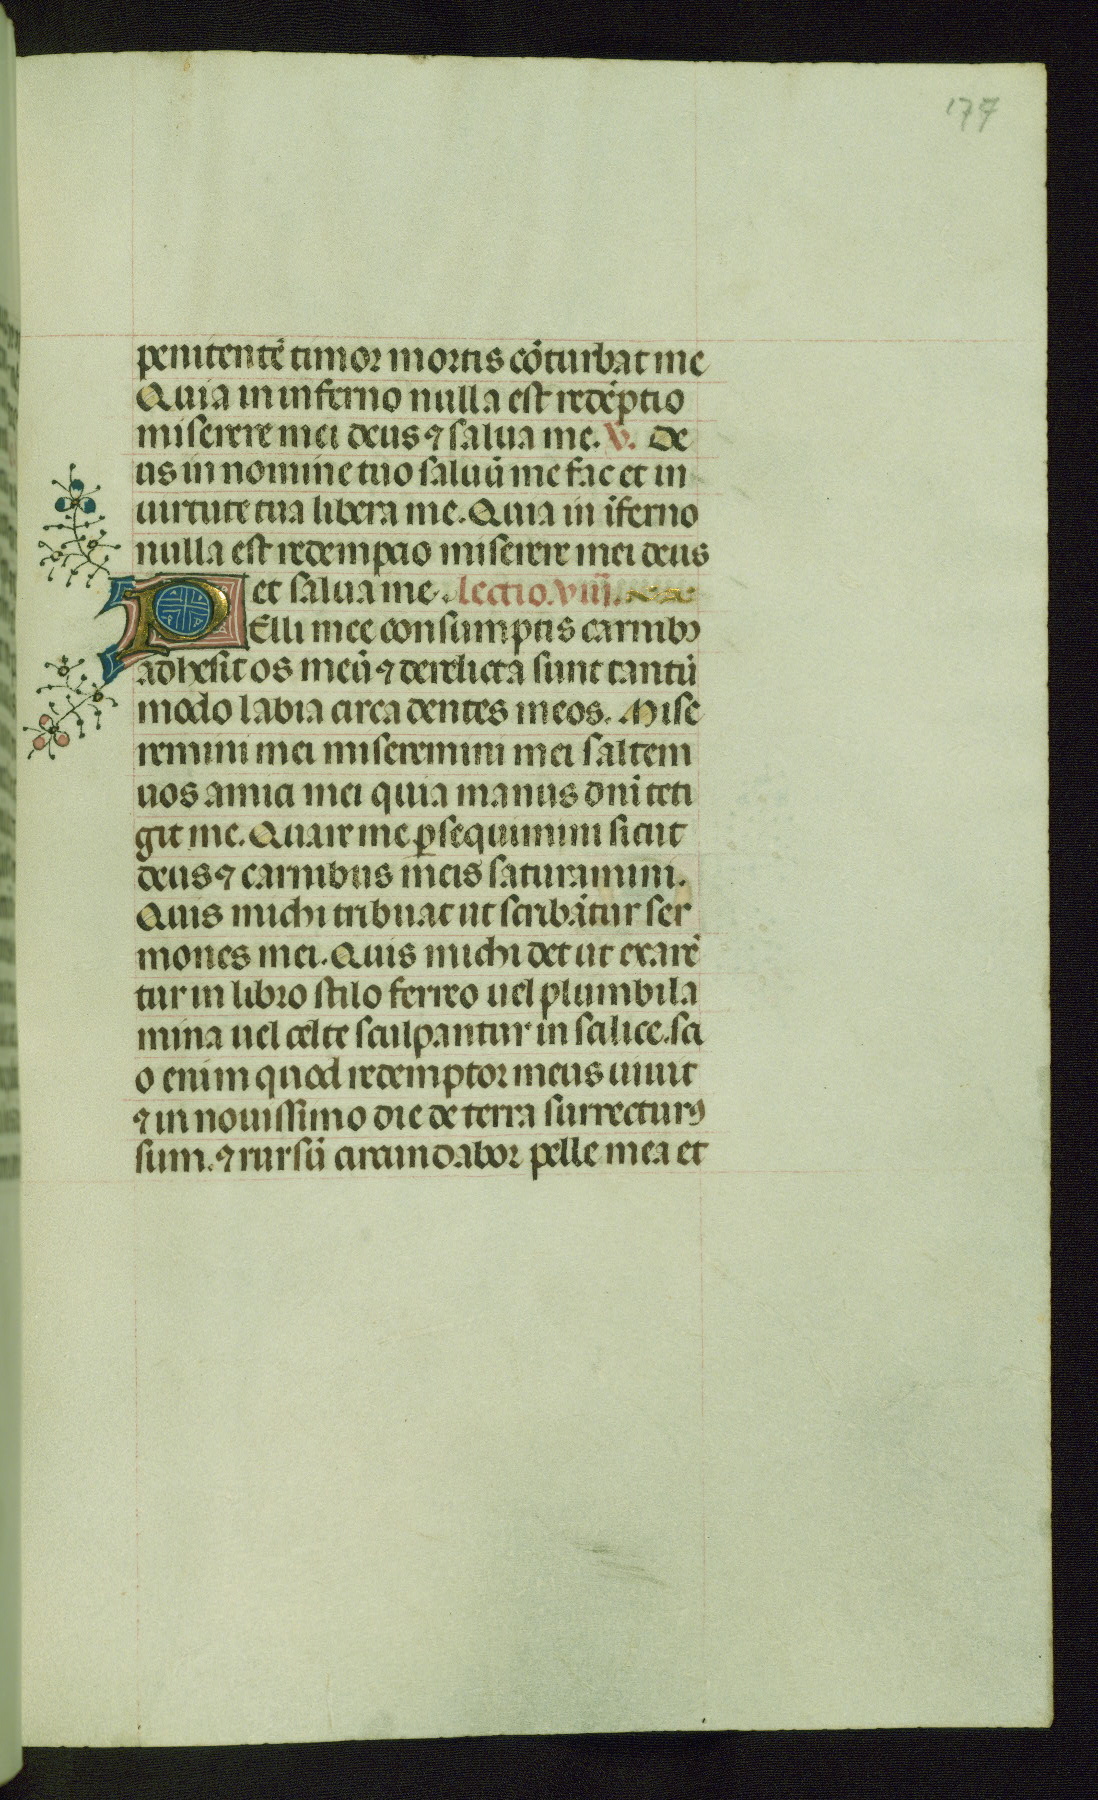 177
penitentē timor mortis cōturbat me
Quia in inferno nulla est redēptio
miserere mei deus ⁊ salua me. V. De
us in nomine tuo saluū me fac et in
uirtute tua libera me. Quia in īferno
nulla est redempcio miserere mei deus
et salua me. lectio. viii.
PElli mee consumptis carnibꝫ
adhesit os meū ⁊ derelicta sunt tantū
modo labia circa dentes meos. Mise
remini mei miseremini mei saltem
uos amici mei quia manus dnī teti
git me. Quare me ꝑsequimini sicut
deus ⁊ carnibus meis saturamini.
Quis michi tribuat ut scribātur ser
mones mei. Quis michi det ut exarē
tur in libro stilo ferreo uel plumbi la
mina uel celte sculpantur in scilice. sci
o enim quod redemptor meus uiuit
⁊ in nouissimo die de terra surrecturꝰ
sum. ⁊ rursū circundabor pelle mea et